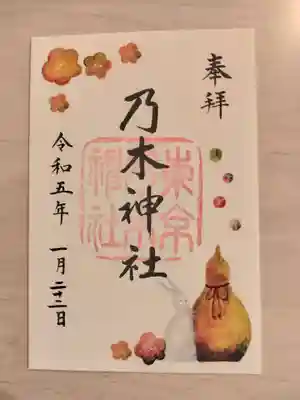 奉拝
乃木神社
東京
神社
令和五年 一月二十二日